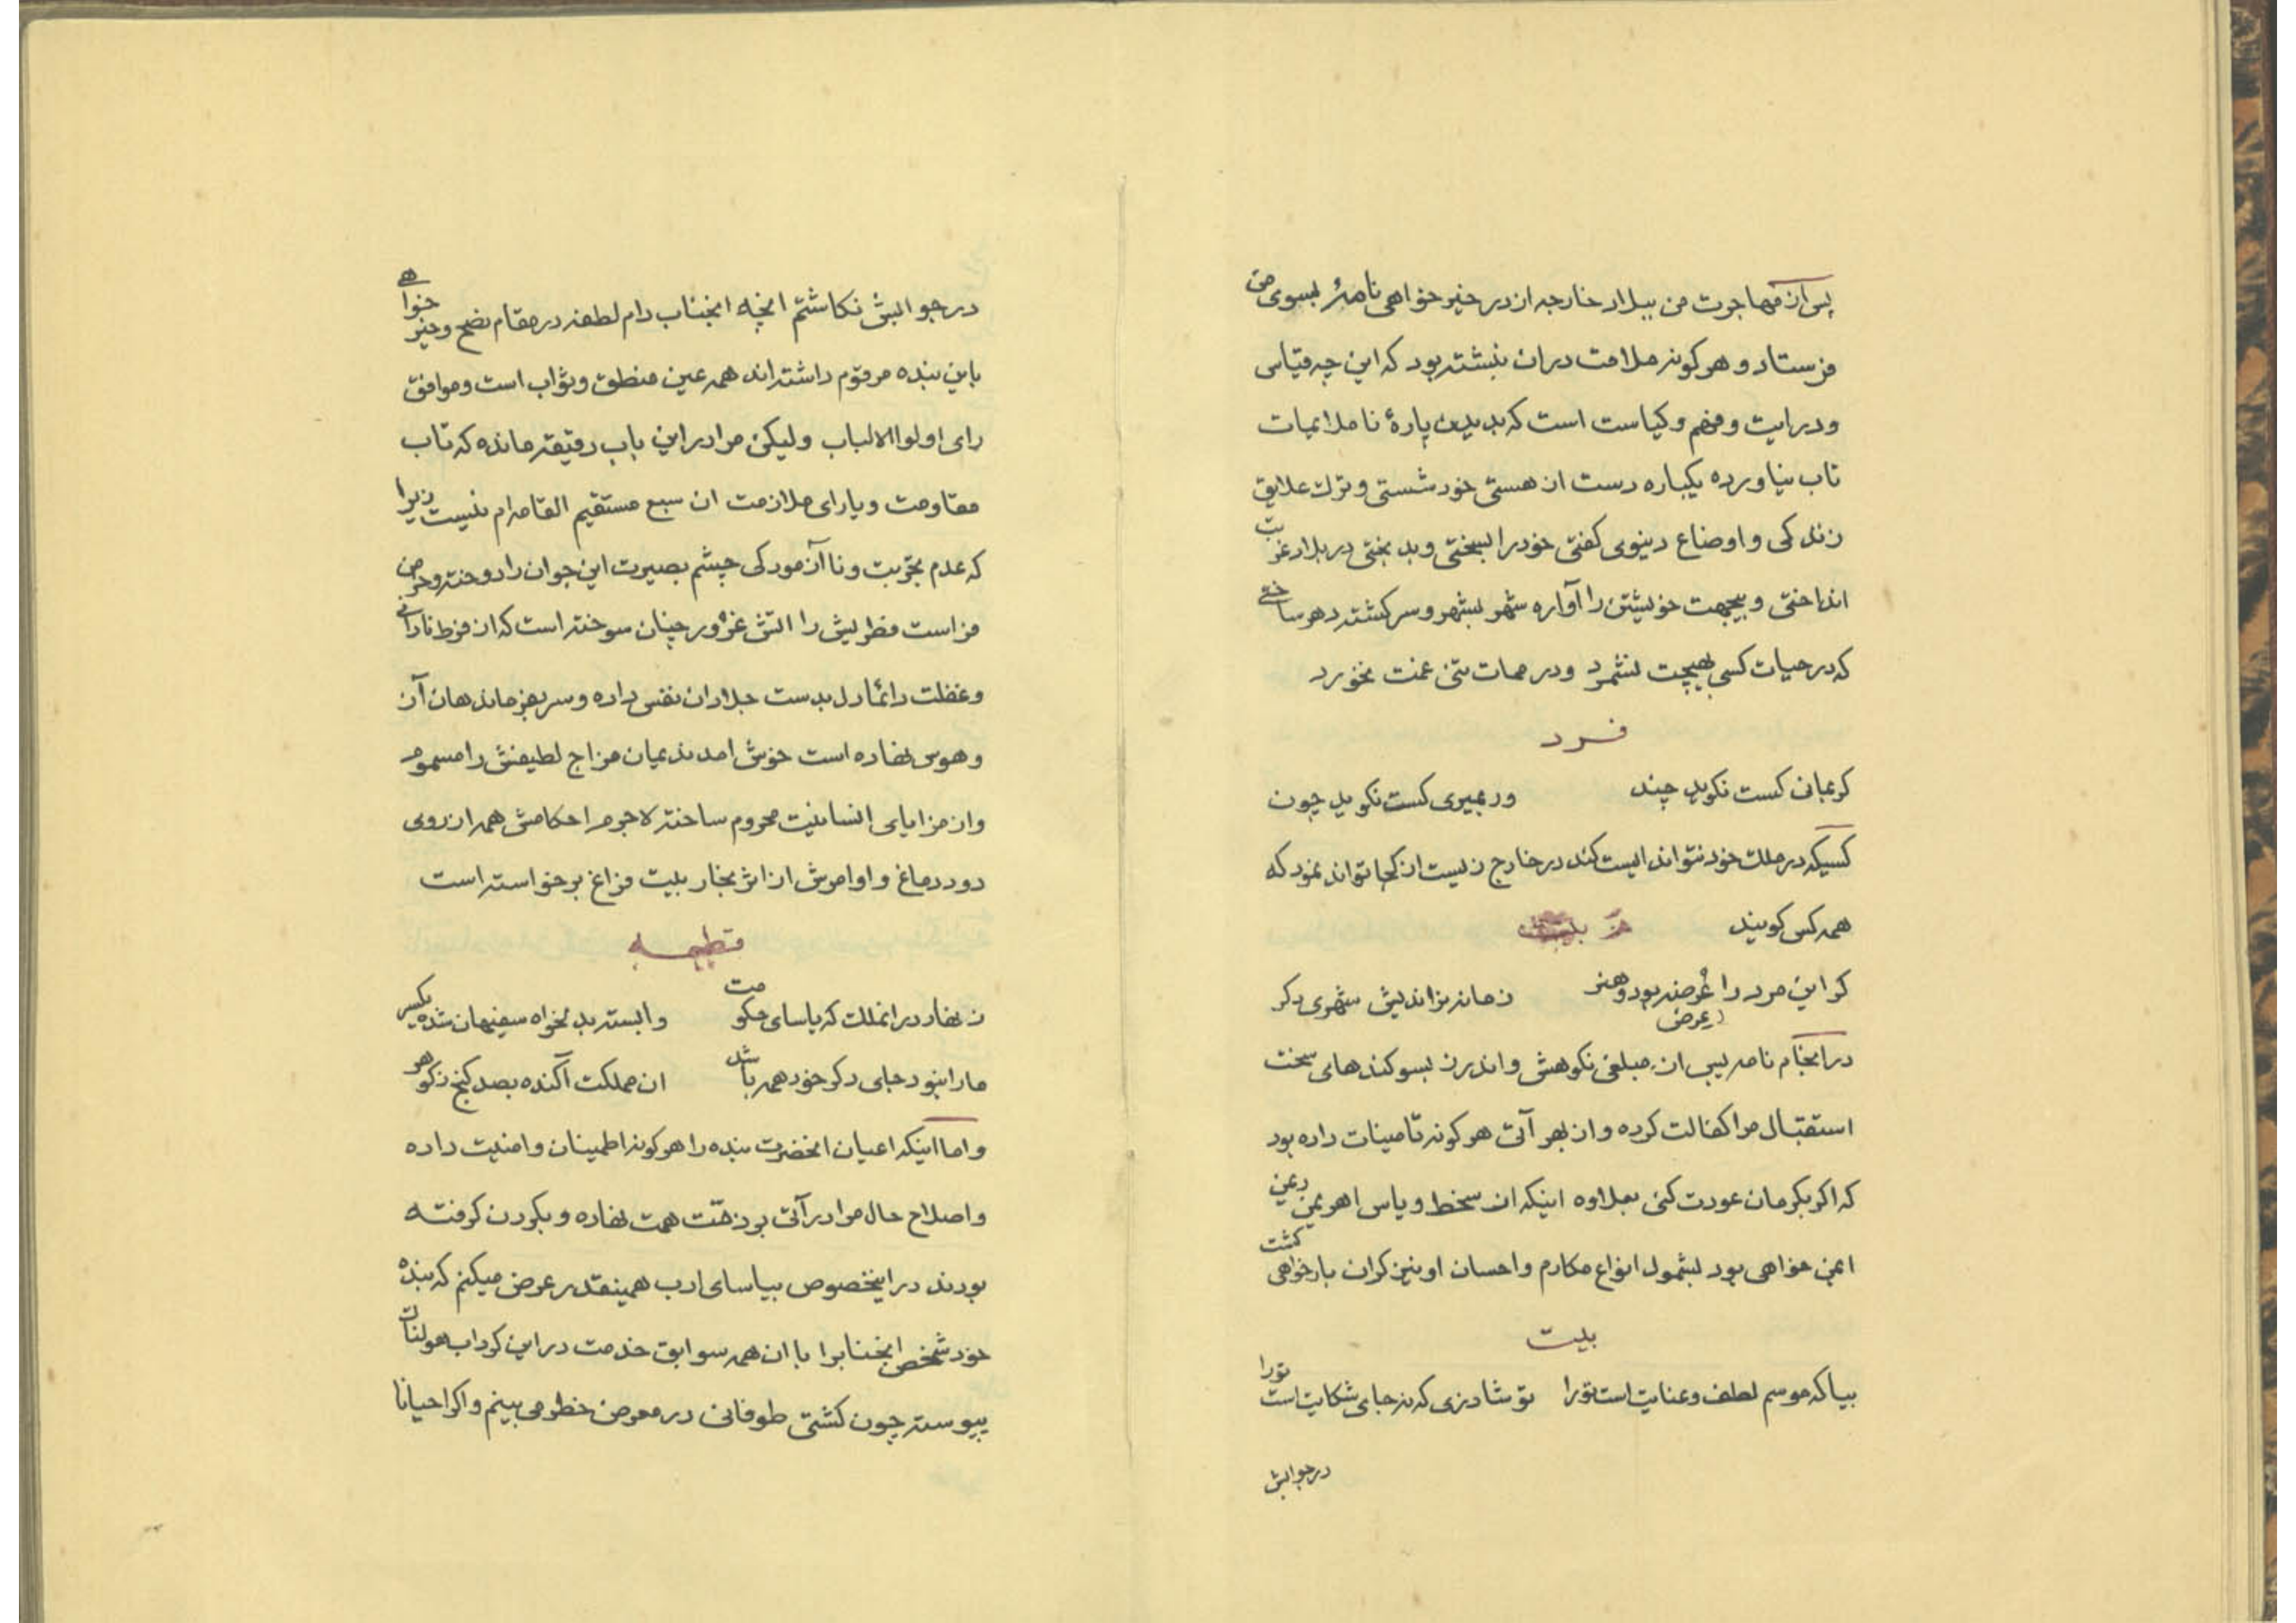 پس از مهاجرت من ببلاد خارجه از در خیر خواهی نامهٔ بسوی من
فرستاد و هرکونه ملامت در ان نبشته بود که این چه قیاس
و درایت و فهم و کیاست است که بدیدن پارهٔ ناملایمات
تاب نیاورده یکباره دست از هستی خود شستی و ترك علایق
زندکی و اوضاع دنیوی کفتی خود را بسختی و بد بختی در بلاد غربت
انداختی و بیجهت خویشتن را آواره شهر بشهر و سرکشته دهر ساختی
که در حیات کسی بهیچت نشمرد و در ممات تنی غمت نخورد
فرد
کر بمانی کست نکوید چند ور بمیری کست نکوید چون
کسیکه در ملك خود نتواند ایست کند در خارج زیست از کجا تواند نمود که
همه کس کویند بیت
کر این مرد را عرضه بود و هنر زمانه نراندیش شهری دکر
در انجام نامه پس از مبلغی نکوهش و اندرز بسوکندهای سخت
استقبال مرا کفالت کرده و از بهر آتی هرکونه تامینات داده بود
که اکر بکرمان عودت کنی بعلاوه اینکه از سخط و یاس اهریمن ریمن
ایمن خواهی بود بشمول انواع مکارم و احسان او نیز کران بار خواهی کشت
بیت
بیا که موسم لطف و عنایت است تورا تو شادزی که نه جای شکایت است تورا
در جوابش
در جوابش نکاشتم انچه انجناب دام لطفه در مقام نصح و خیر خواهی
باین بنده مرقوم داشته اند همه عین منطق و ثواب است و موافق
رای اولوا الالباب ولیکن مرا در این باب دقیقه مانده که تاب
مقاومت و یارای ملازمت ان سبع مستقیم القامه ام نیست زیرا
که عدم تجربت و نا آزمودکی چشم بصیرت این جوان را دوخته و خرمن
فراست فطریش را اتش غرور چنان سوخته است که از فرط نادانی
و غفلت دائما دل بدست جلادان نفس داده و سر بفرماندهان آز
و هوس نهاده است خوش امد ندیمان مزاج لطیفش را مسموم
و از مزایای انسانیت محروم ساخته لاجرم احکامش همه از روی
دود دماغ و اوامرش از اثر بخار بیت فراغ برخواسته است
قطعه
زنهار در انملك که یاسای حکومت وابسته بدلخواه سفیهان شده یکسر
مارا نبود جای دکر خود همه باشد ان مملکت آکنده بصد کنج ز کوهر
و اما اینکه اعیان انحضرت بنده را هرکونه اطمینان و امنیت داده
و اصلاح حال مرا در آتی بر ذمت همت نهاده و بکردن کرفته
بودند در اینخصوص بیاسای ادب همینقدر عرض میکنم که بنده
خود شخص انجنابرا با ان همه سوابق خدمت در این کرداب هولناك
پیوسته چون کشتی طوفانی در معرض خطر می بینم و اکر احیانا